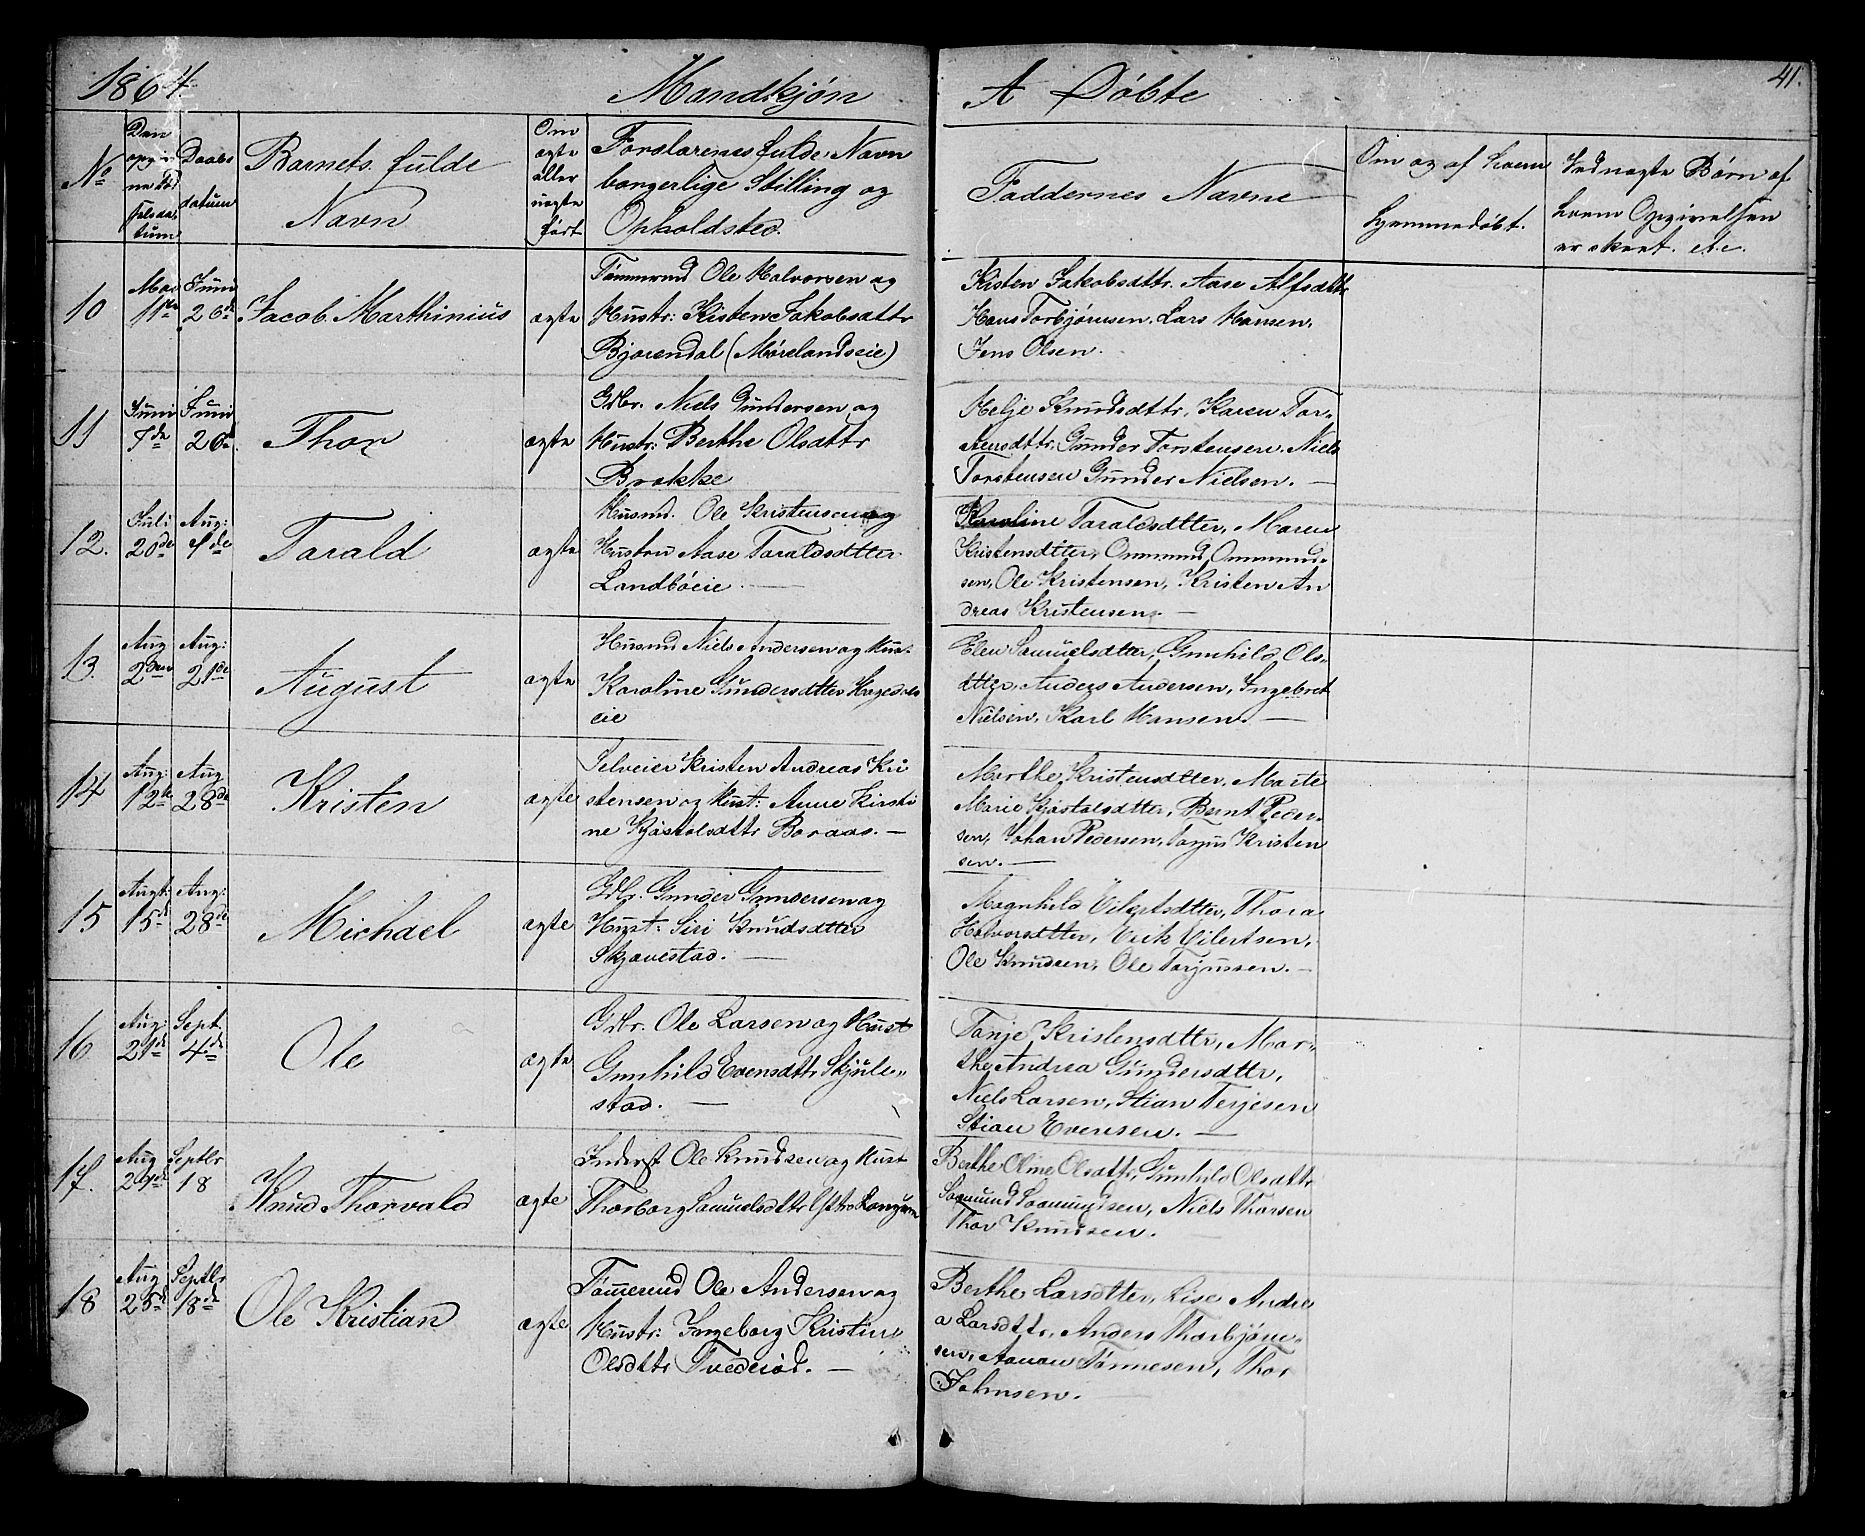 1864.
Mandkjøn
A Døbte
41.
No
Den opgivne Fødselsdatum
Daabsdatum
Barnets fulde
Navn
Om
ægte
eller
uægte
født
Forældrenes fulde Navn
borgerlige Stilling og
Opholdsted.
Faddernes Navne
Om og af hvem
hjemmedøbt.
Ved uægte Børn af
hvem Opgivelsen
er skeet. etc.
10
Mai
11te
Juni
26de
Jacob Marthinius
ægte
Tømmermd Ole Halvorsen og
Hustr: Kisten Jakobsdttr
Bjorendal (Mørelandseie)
Kisten Jakobsdttr. Aase Alfsdttr
Hans Torbjørnsen. Lars Hansen.
Jens Olsen.
11
Juni
7de
Juni
26de
Thor
ægte
Gdbr. Niels Gundersen og
Hustr: Berthe Olsdttr
Brokke
Helje Knudsdttr, Karen Tor-
stensdttr. Gunder Torstensen. Niels
Torstensen Gunder Nielsen. —
12.
Juli
20de
Aug:
7de
Tarald
ægte
Husmd. Ole Kristensen og
Hustru Aase Taraldsdtter
Landbøeie. —
Karoline Taraldsdtter, Maren
Kristensdtter, Ommund Ommund-
sen, Ole Kristensen, Kristen An
dreas Kristensen. —
13.
Aug
2den
Aug:
21de
August
ægte
Husmd Niels Andersen og Hust.
Karoline Gundersdtter
eie
Elen Samuelsdtter, Gunhild Ols-
dtter, Anders Andersen, Ingebret
Nielsen, Karl Hansen. —
14
Aug:
12te
Aug
28de
Kristen
ægte
Selveier Kristen Andreas Kri
stensen og Hust: Anne Kirsti
ne Kjøstolsdttr Boraas. —
Marthe Kristensdtter, Marte
Marie Kjøstolsdtter, Bernt Peder-
sen, Johan Pedersen, Torjus Kristen
sen. —
15
Augt:
15de
Aug:
28de
Michael
ægte
Gdbr. Gunder Gundersen og
Hust: Siri Knudsdtter
Skjævestad. —
Magnhild Eilertsdtter, Thora
Halvorsdtter, Erik Eilertsen,
Ole Knudsen, Ole Torjussen. —
16
Aug:
21de
Sept.
4de
Ole
ægte
Gdbr. Ole Larsen og Hust
Gunhild Evensdttr Skjule-
stad. —
Tonje Kristensdttr, Mar-
the Andrea Gundersdttr,
Niels Larsen, Stian Terjesen
Stian Evensen. —
17.
Aug
Septbr
18
Knud Thorvald
ægte
Inderst Ole Knudsen og Hust
Thorborg Samuelsdttr Østre Langum
Berthe Oline Olsdttr, Gunhild Olsdttr
Samund Samundsen, Niels Thorsen
Thor Knudsen.
18
Aug
25de
Septbr
18de
Ole Kristian
ægte
Tømmermd Ole Andersen og
Hustr: Ingeborg Kristine
Olsdttr Tvedeiød. —
Berthe Larsdtter, Lise Andre
a Larsdttr, Anders Thorbjørn-
sen, Aanon Tønnesen, Thor
Johnsen. —